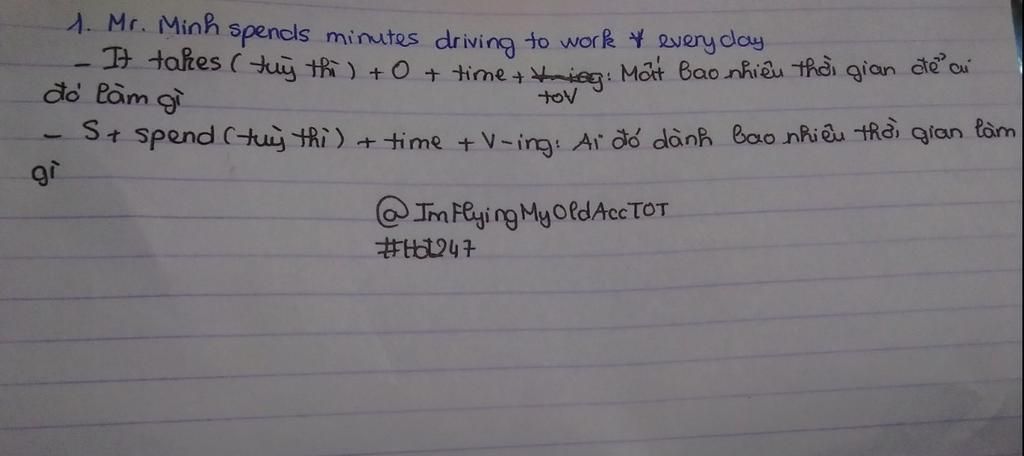 1. Mr. Minh spends minutes driving to work everyday
- It takes (tuỳ thì) + O + time + V-ing: Mất bao nhiêu thời gian để ai
toV
đó làm gì
- S + spend (tuỳ thì) + time + V-ing: Ai đó dành bao nhiêu thời gian làm
gì
@ImFlyingMyOldAccTOT
#Hd247